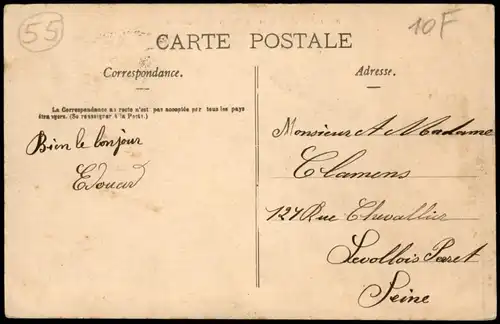 55
10F
CARTE POSTALE
Correspondance.
Adresse.
La Correspondance au recto n'est pas acceptée par tous les pays
étrangers. (Se renseigner à la Poste.)
Bien le bonjour
Edouard
Monsieur et Madame
Clamens
127 Rue Chevallier
Levollois Peret
Seine